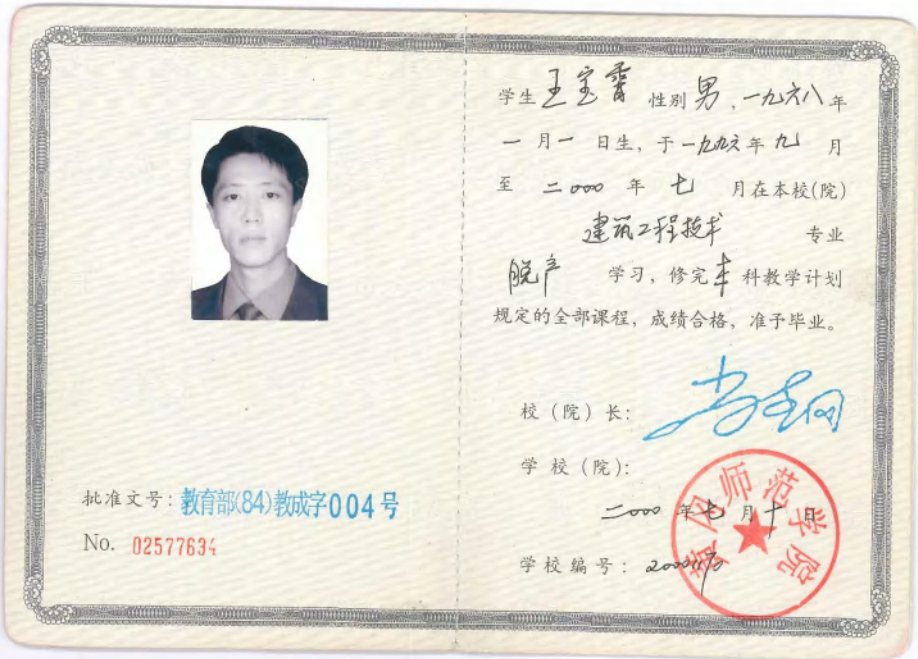 批准文号：教育部(84)教成字004号
No. 02577634
学生 王宝霄 性别 男，一九六八年
一月一日生，于一九九六年九月
至二000年七月在本校(院)
建筑工程技术 专业
脱产 学习，修完本科教学计划
规定的全部课程，成绩合格，准予毕业。
校（院）长：
学校（院）：
二000年七月十日
学校编号：
黄冈师范学院